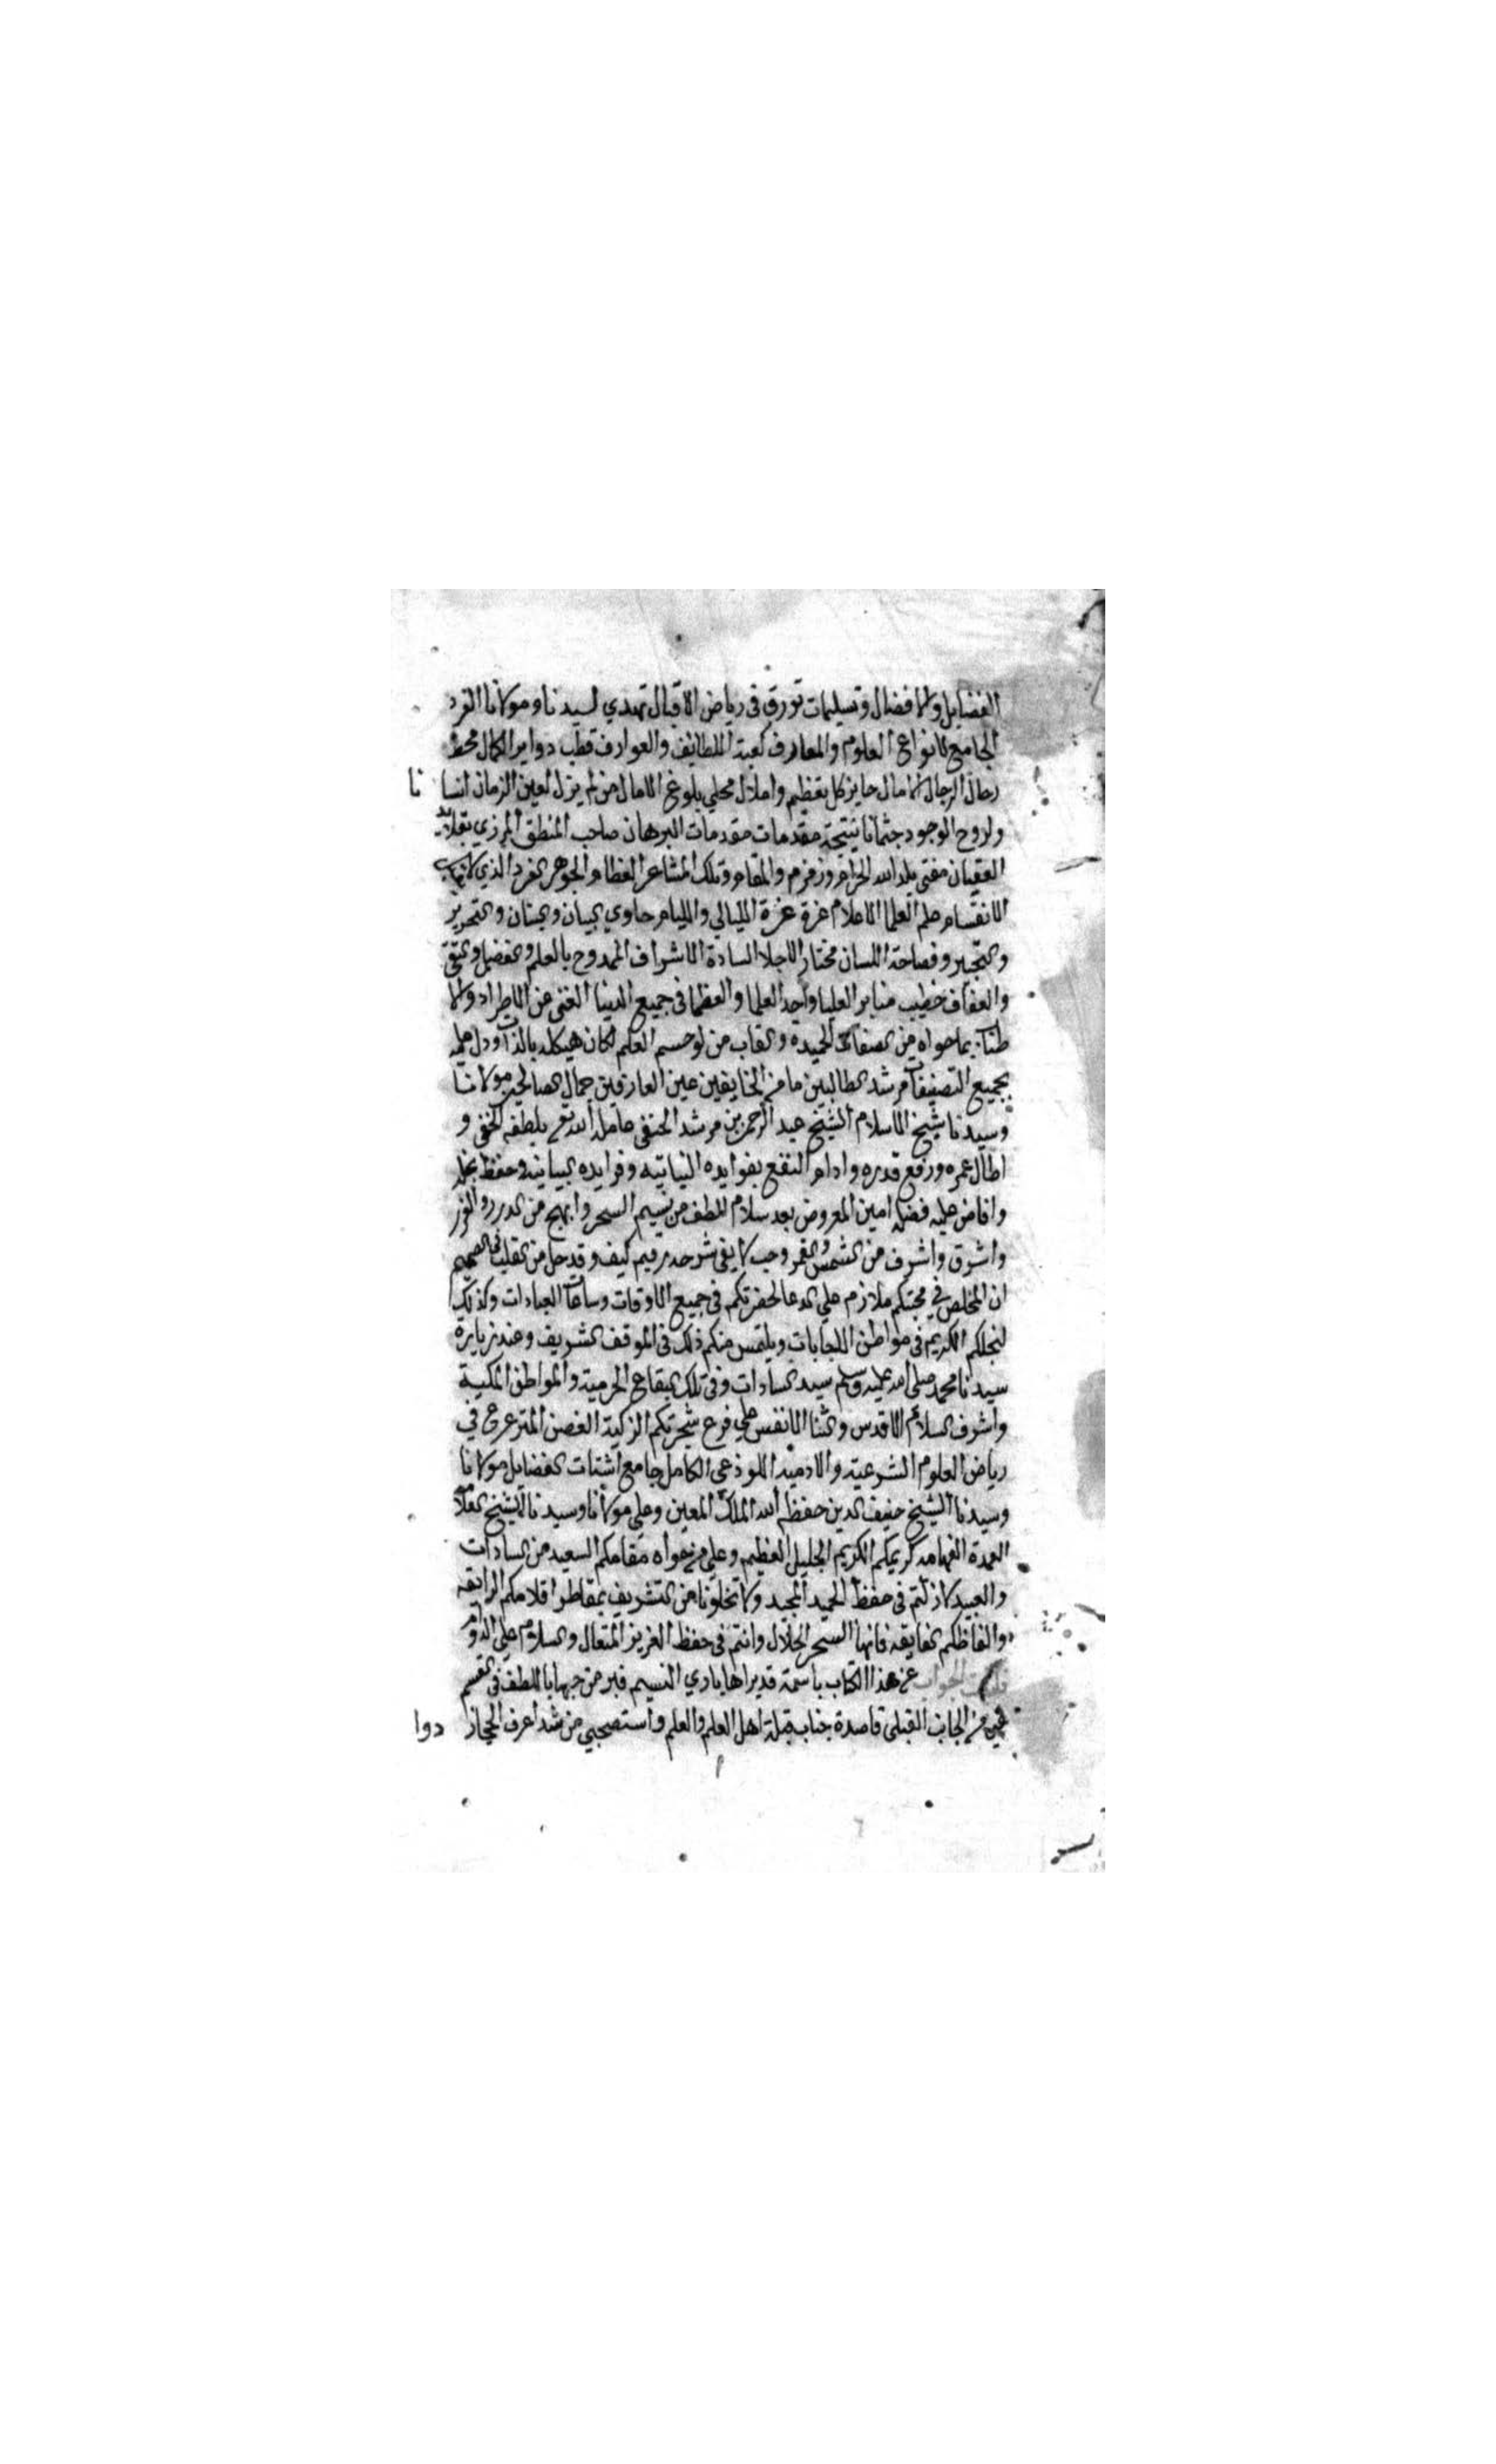 الفضايل والافضال وتسليمات تورق فى رياض الاقبال تهدي لسيدنا ومولانا الفرد
الجامع لانواع العلوم والمعارف كعبة اللطايف والعوارف قطب دواير الكمال محط
رحال الرجال الامال حايز كل تعظيم واجلال محلي بلوغ الامال من لم يزل لعين الزمان انسانا
ولروح الوجود جثمانا نتيجة مقدمات مقدمات البرهان صاحب المنطق المزري بقلايد
العقيان مفتى بلد الله الحرام وزمزم والمقام وتلك المشاعر العظام والجوهر الفرد الذي لا يهاب
الانقسام علم العلما الاعلام غرة غرة الليالي والايام حاوي البيان والتبيان والتحرير
والتحبير وفصاحة اللسان مختار الاجلا السادة الاشراف الممدوح بالعلم والفضل والتقى
والعفاف خطيب منابر العليا واحد العلما والعظما فى جميع الدنيا الغنى عن الاطراد والا
طناب بما حواه من الصفات الحميده والقاب من لو جسم العلم لكان هيكله بالذات ودل عليه
بجميع التصنيفات مرشد الطالبين مامن الخايفين عين العارفين جمال الصالحين مولانا
وسيدنا شيخ الاسلام الشيخ عبد الرحمن بن مرشد الحنفى عامله الله تع بلطفه الخفى و
اطال عمره ورفع قدره وادام النفع بفوايده البيانيه وفرايده وحفظ نجله
وافاض عليه فضله امين المعروض بعد سلام الطف من نسيم السحر وابهج من الدرر والغرر
واشرق واشرف من الشمس والقمر وحب لا يفى شرحه رقيم كيف وقد حل من القلب فى الصميم
ان المخلص في محبتكم ملازم على الدعا لحضرتكم فى جميع الاوقات وساعات العبادات وكذلك
لنجلكم الكريم فى مواطن الاجابات ويلتمس منكم ذلك فى الموقف الشريف وعند زيارة
سيدنا محمد صلى الله عليه وسلم سيد السادات وفى تلك البقاع الحرمية والمواطن المكية
واشرف السلام الاقدس والثنا الانفس على فرع شجرتكم الزكية الغصن المترعرع في
رياض العلوم الشرعية والادبيه اللوذعي الكامل جامع اشتات الفضايل مولانا
وسيدنا الشيخ حنيف الدين حفظه الله الملك المعين وعلى مولانا وسيدنا الشيخ العلامه
العمدة الفهامه كريمكم الكريم الجليل العظيم وعلى من حواه مقامكم السعيد من السادات
والعبيد لا زلتم فى حفظ الحميد المجيد ولا تخلونا من التشريف بمقاطر اقلامكم الرايقه
والفاظكم الفايقه فانها السحر الحلال وانتم فى حفظ العزيز المتعال والسلام على الدوام
الجواب عن هذا الكتاب باسمة بادي النسيم من باللطف فى القسم
من الجانب القبلى قاصدة جناب قبلة اهل العلم والعلم واستصحبي من شذا عرف الحجاز دوا